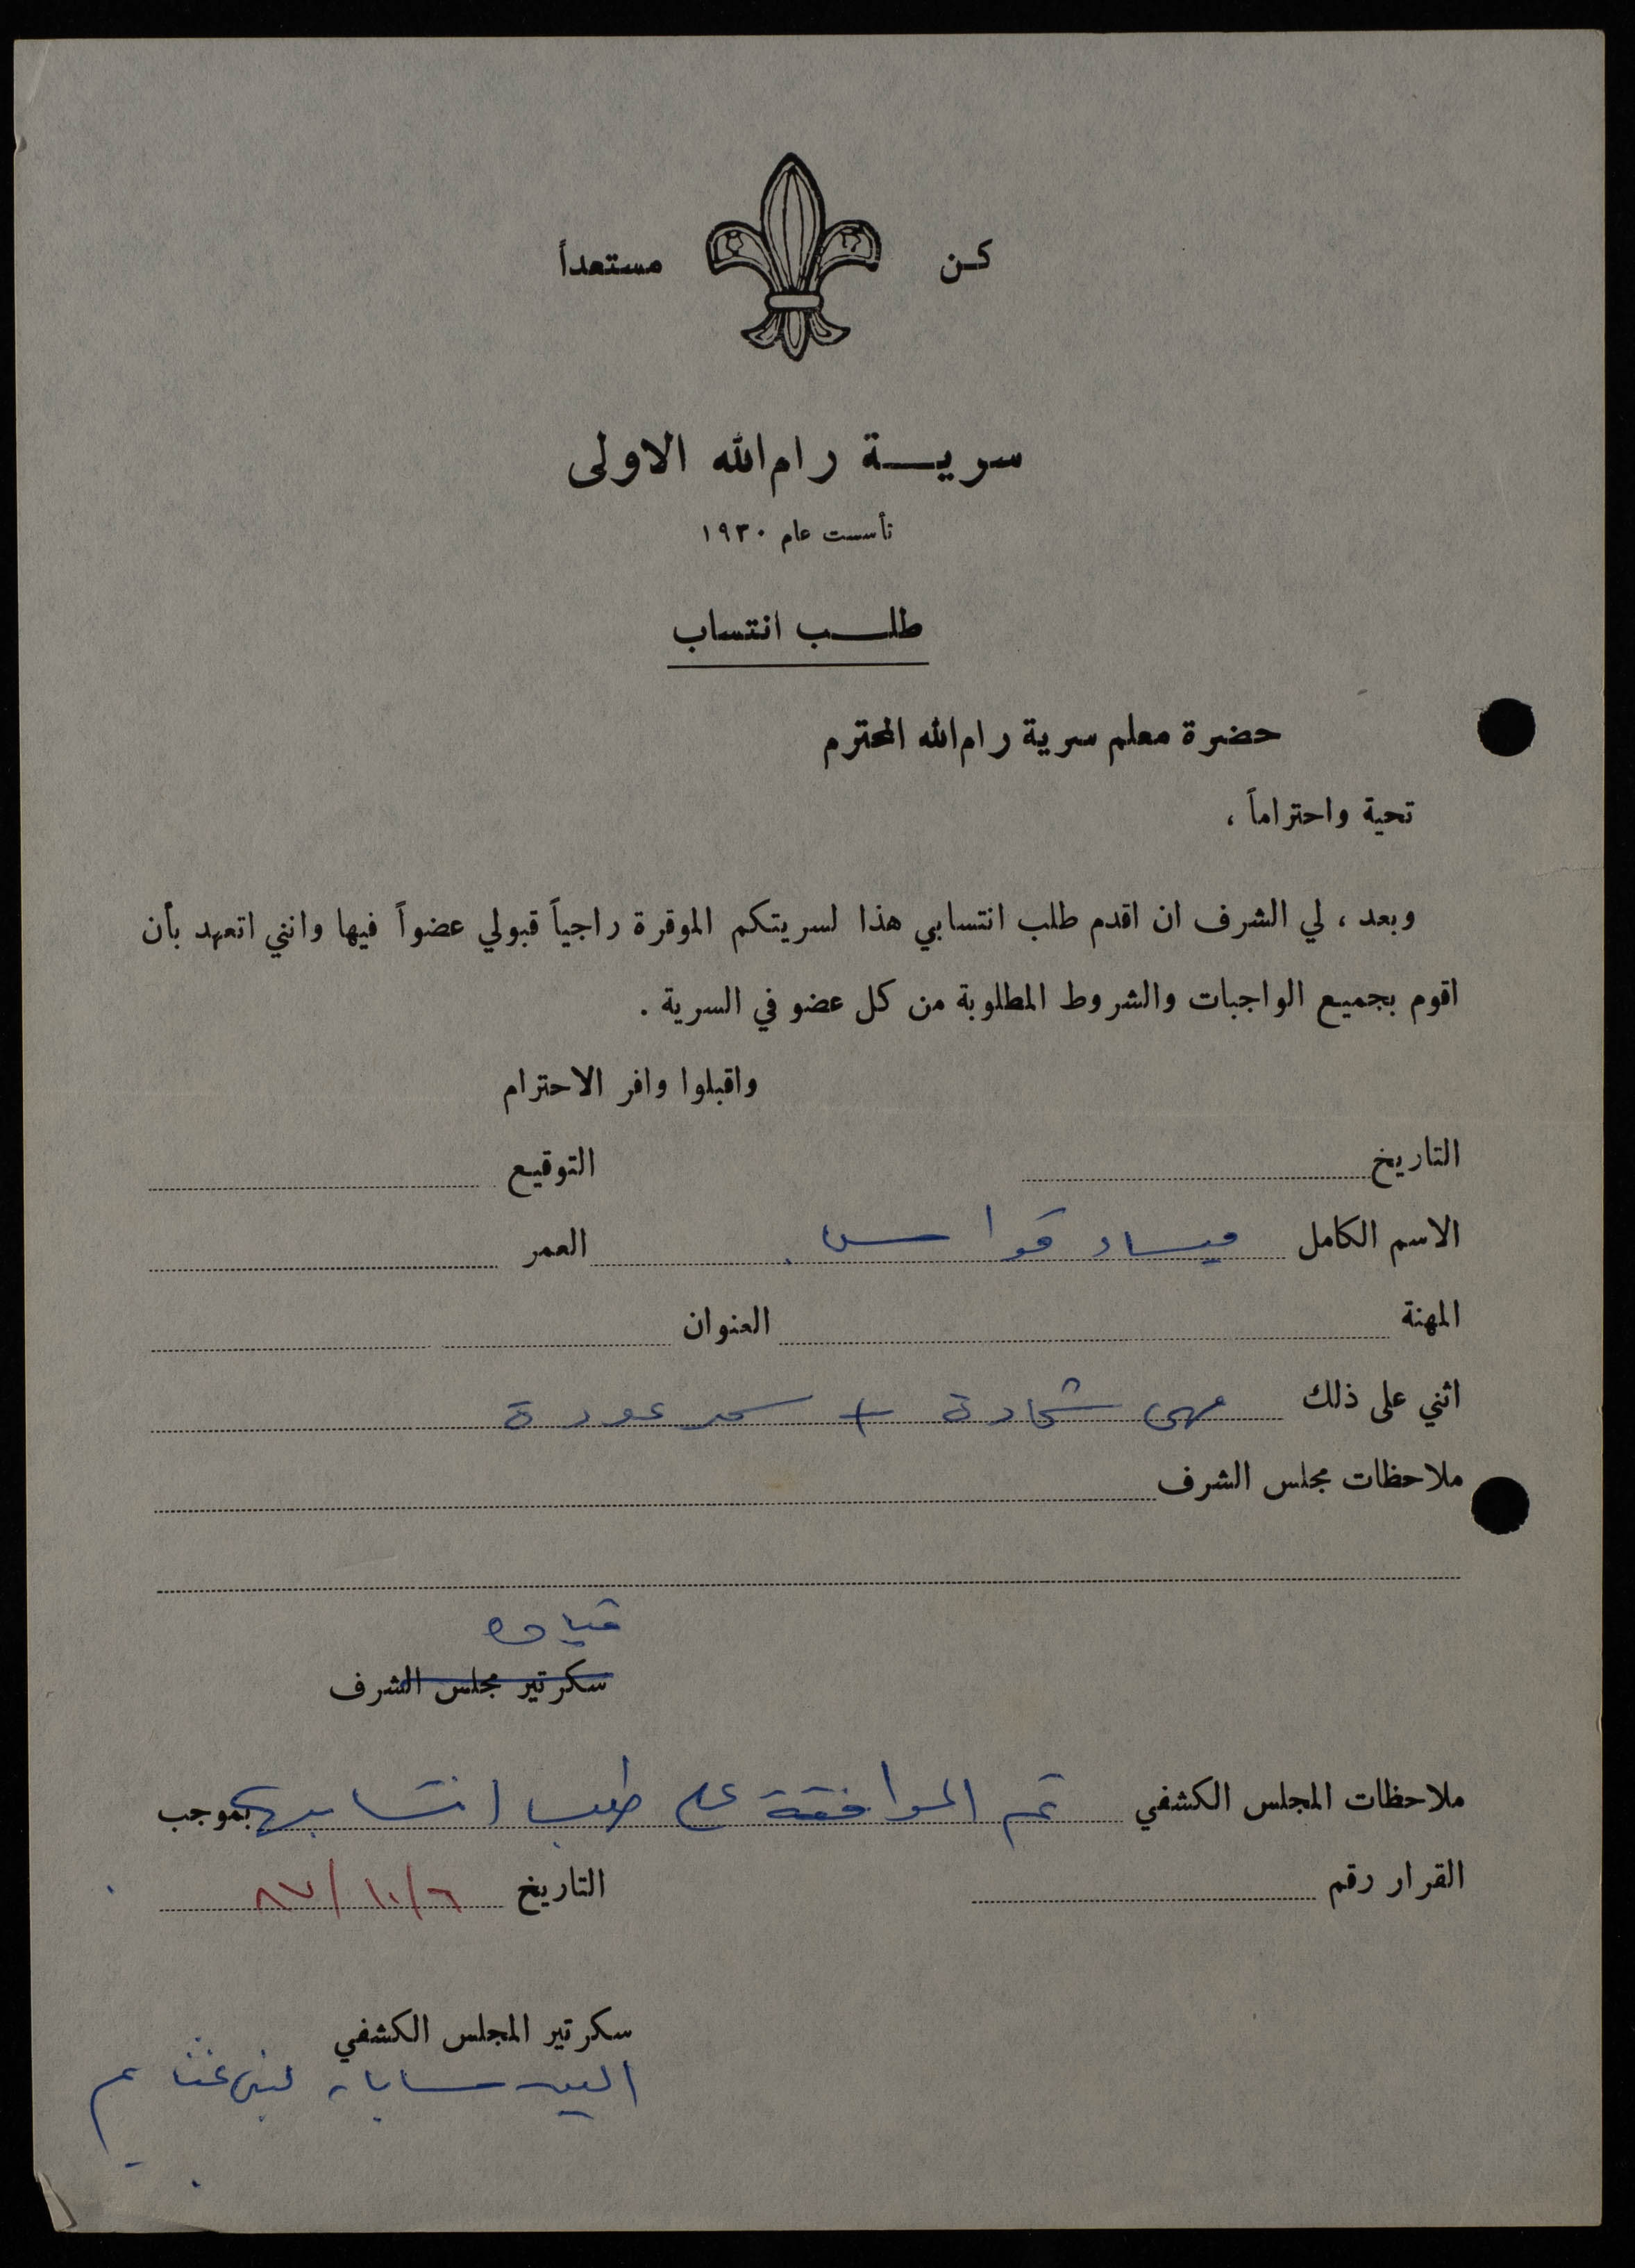 كن مستعداً
سرية رام الله الاولى
تأسست عام ١٩٣٠
طلب انتساب
حضرة معلم سرية رام الله المحترم
تحية واحتراماً ،
وبعد ، لي الشرف ان اقدم طلب انتسابي هذا لسريتكم الموقرة راجياً قبولي عضواً فيها وانني اتعهد بأن
اقوم بجميع الواجبات والشروط المطلوبة من كل عضو في السرية .
واقبلوا وافر الاحترام
التاريخ التوقيع
الاسم الكامل ميساء العمر
المهنة العنوان
اثني على ذلك مهى شحادة + سحر عودة
ملاحظات مجلس الشرف
قيادة
سكرتير مجلس الشرف
ملاحظات المجلس الكشفي تم الموافقة على طلب انتسابها بموجب
القرار رقم التاريخ ٨٧/١٠/٦
سكرتير المجلس الكشفي
سابا لبنى غنايم